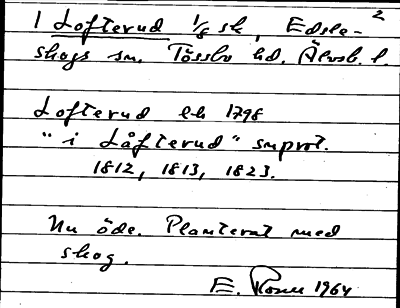 2
1 Lofterud 1/8 sk, Edsle-
skogs sn. Tössbo hd. Älvsb. l.
Lofterud lk 1798
"i Låfterud" snprot.
1812, 1813, 1823.
Nu öde. Planterat med
skog.
E. 1964